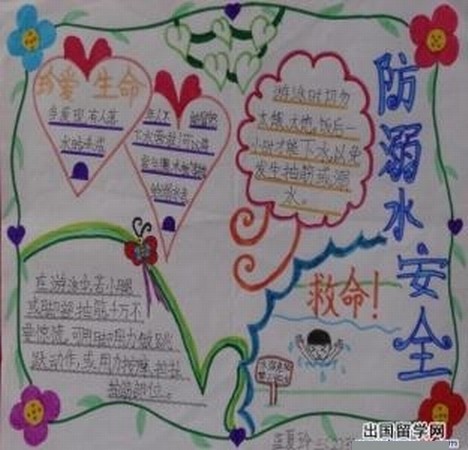 防溺水安全
珍爱生命
当发现有人落
水时未成
年人不
下水营救!可以
游泳时切勿
太饿、太饱。饭后一
小时才能下水,以免
发生抽筋或溺
水。
在游泳中若小腿
或脚部抽筋千万不
要惊慌,可用力蹬跳
跃动作,或用力按摩、拉扯
抽筋部位。
救命!
出国留学网